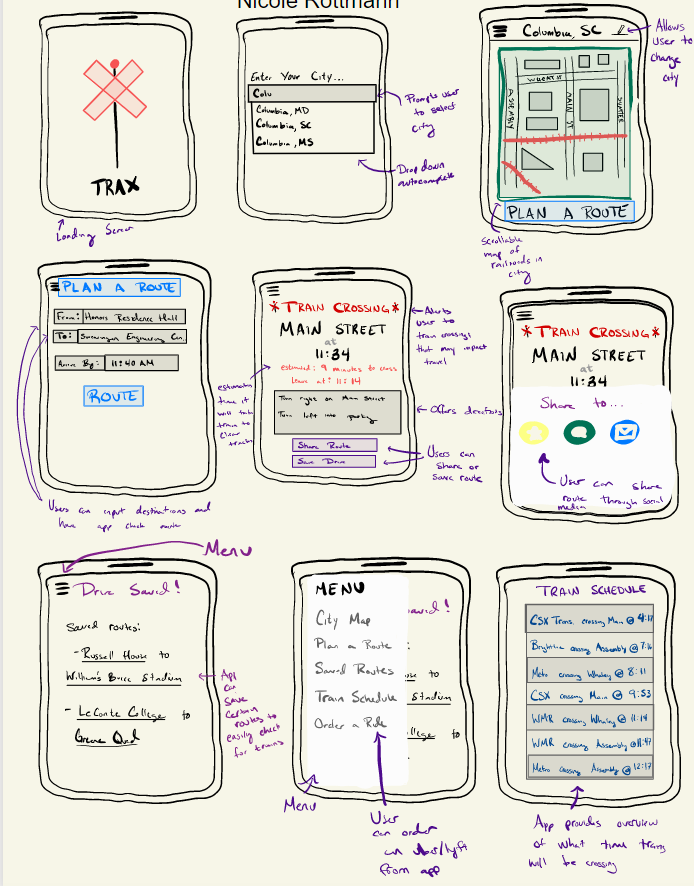 Nicole Rottmann
TRAX
Loading Screen
Enter Your City...
Colu
Columbia, MD
Columbia, SC
Columbia, MS
Prompts user
to select
city
Drop down
autocomplete
Columbia, SC
WHEAT ST
ASSEMBLY
MAIN ST
SUMTER
PLAN A ROUTE
Allows
user to
change
city
Scrollable
map of
railroads in
city
PLAN A ROUTE
From: Honors Residence Hall
To: Swearingen Engineering Cen.
Arrive By: 11:40 AM
ROUTE
Users can input destinations and
have app check route
* TRAIN CROSSING *
MAIN STREET
at
11:34
estimated: 9 minutes to cross
leave at: 11:14
Turn right on Main Street
Turn left into parking
Share Route
Save Drive
Alerts
user to
train crossings
that may impact
travel
estimates
time it
will take
train to
clear
tracks
Offers directions
Users can
share or
save route
* TRAIN CROSSING *
MAIN STREET
at
11:34
Share to...
User can share
route through social
media
Menu
Drive Saved!
Saved routes:
- Russell House to
William's Brice Stadium
- LeConte College to
Greene Quad
App
can
save
certain
routes to
easily check
for trains
MENU
City Map
Plan a Route
Saved Routes
Train Schedule
Order a Ride
aved!
:
use to
Stadium
ollege to
Menu
User
can order
an Uber/Lyft
from app
TRAIN SCHEDULE
CSX Trans. crossing Main @ 4:17
crossing Assembly @ 7:16
Metro crossing Whaley @ 8:11
CSX crossing Main @ 9:53
WMR crossing Whaling @ 11:14
WMR crossing Assembly @ 11:47
Metro crossing Assembly @ 12:17
App provides overview
of what time trains
will be crossing